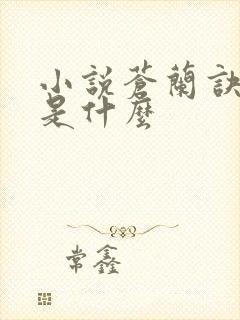 小說蒼蘭訣
是什麼
常鑫